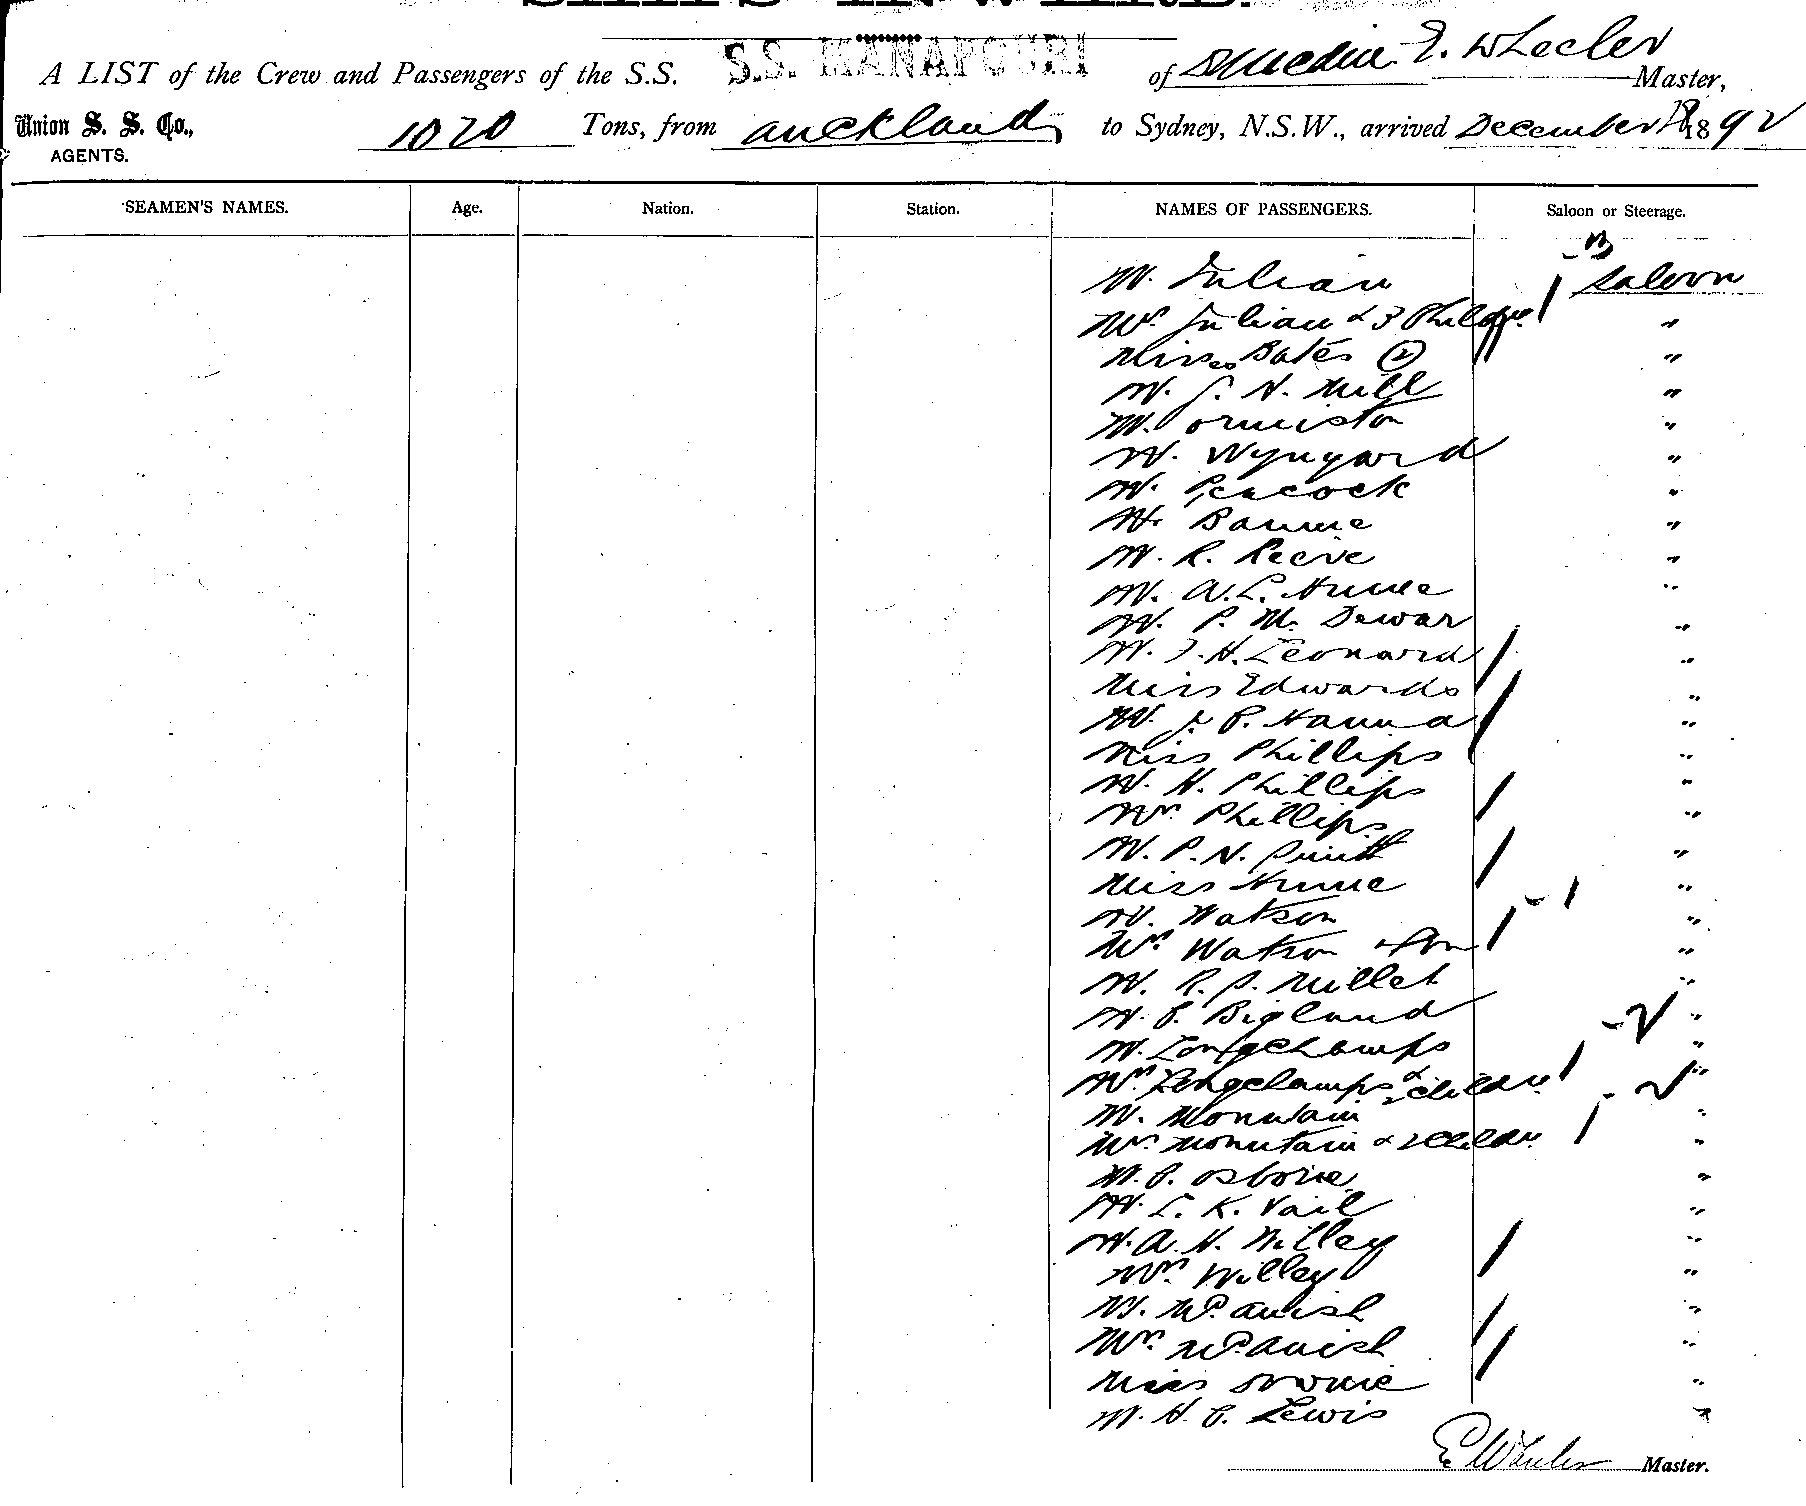 SHIPS INWARD.
A LIST of the Crew and Passengers of the S.S. S.S. MANAPOURI of Dunedin E. Wheeler Master,
Union S. S. Co., AGENTS. 1020 Tons, from Auckland to Sydney, N.S.W., arrived December 18 1892
SEAMEN'S NAMES. Age. Nation. Station. NAMES OF PASSENGERS. Saloon or Steerage.
- 3
Mr. Julian Saloon
Mrs. Julian & 3 Childn. "
Misses Bates (2) "
Mr. J. H. Mill "
Mr. Ormiston "
Mr. Wynyard "
Mr. Peacock "
Mr. "
Mr. R. Reeve "
Mr. A. L. Hume "
Mr. P. M. Dewar "
Mr. J. H. Leonard "
Miss Edwards "
Mr. J. P. Hanna "
Miss Phillips "
Mr. H. Phillips "
Mrs. Phillips "
Mr. P. N. "
Miss Hume "
Mr. Watson - 1 "
Mrs. Watson & son "
Mr. R. S. Millet "
Mr. P. Bigland "
Mr. Longchamps - 2 "
Mrs. Longchamps & 2 childn. "
Mr. Mountain - 2 "
Mrs. Mountain & 2 Childn. "
Mr. P. Osborne "
Mr. L. K. Vail "
Mr. A. H. Willey "
Mrs. Willey "
Mr. "
Mrs. "
Miss "
Mr. H. C. Lewis "
E. Wheeler Master.